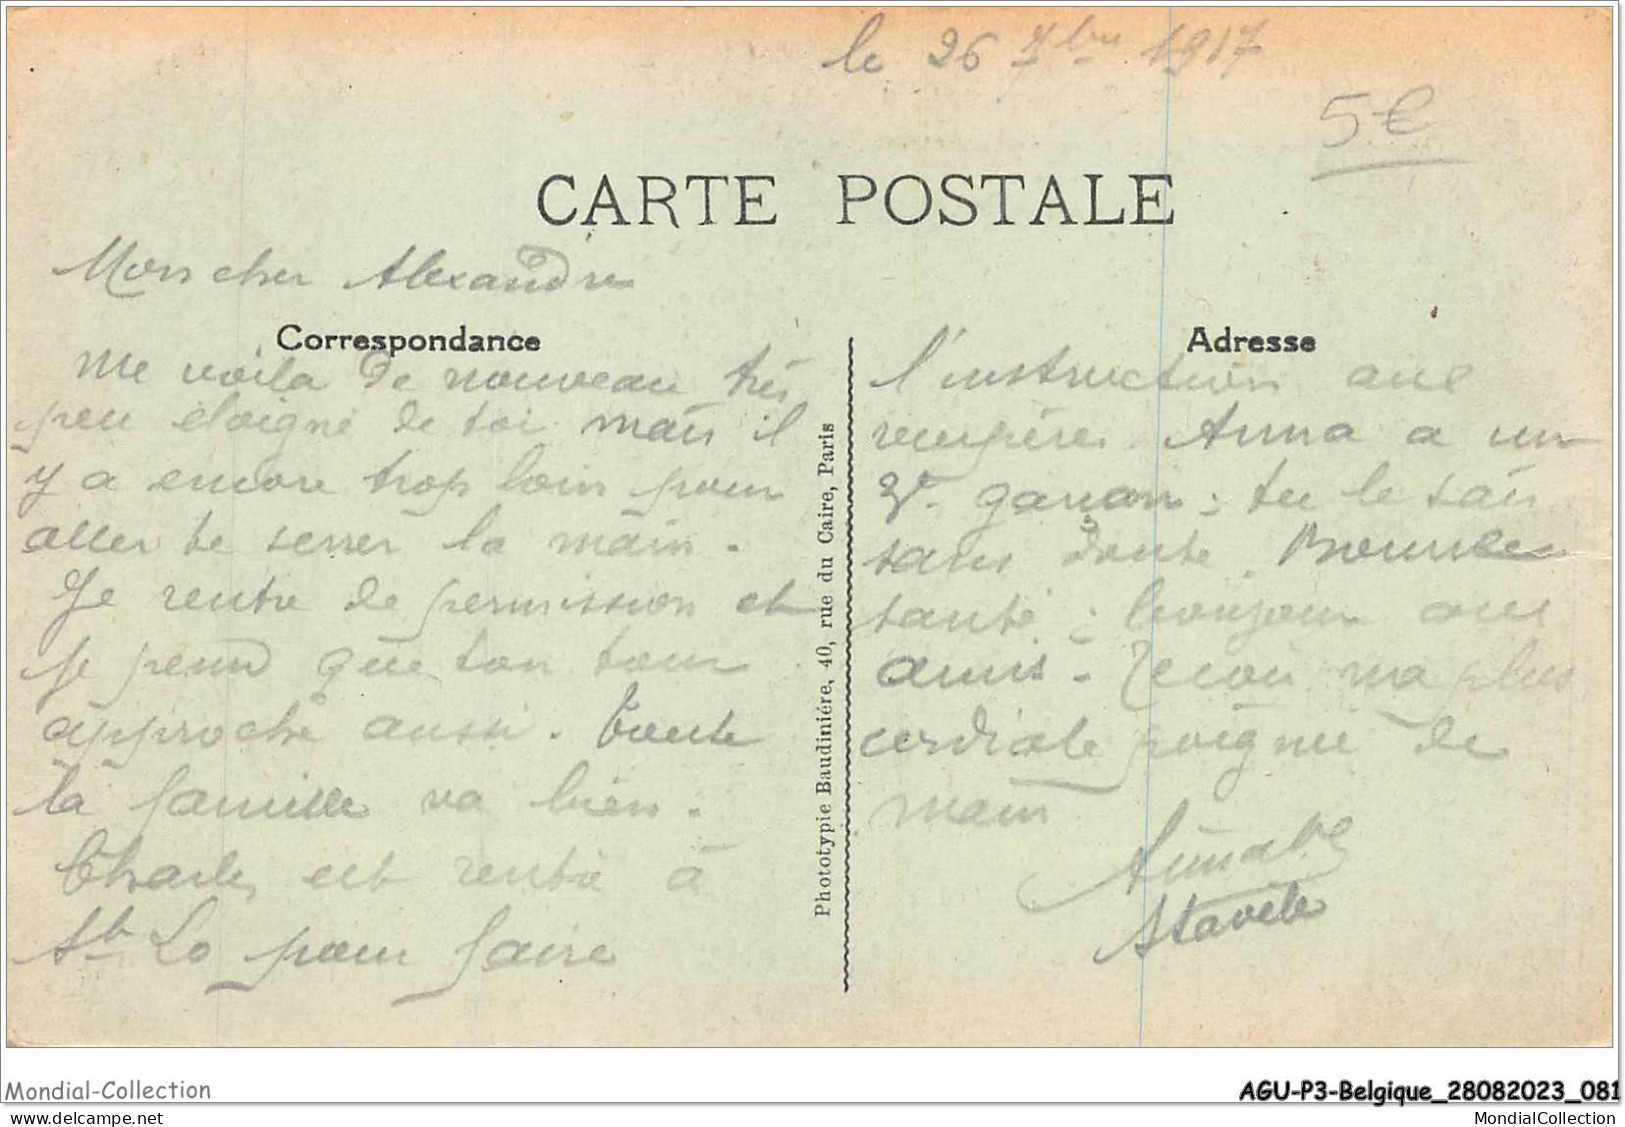 le 26 7bre 1917
5€
CARTE POSTALE
Mon cher Alexandre
Correspondance
Me voila de nouveau très
peu éloigné de toi mais il
y a encore trop loin pour
aller te serrer la main.
Je rentre de permission et
je pense que ton tour
approche aussi. Toute
la famille va bien.
Charles est rentré à
St Lo pour faire
Phototypie Baudinière, 40, rue du Caire, Paris
Adresse
l'instruction aux
récupérés. Anna a un
2e garçon ; tu le sais
sans doute. Bonne
santé ; bonjour aux
amis. Reçois ma plus
cordiale poignée de
main
Aimable
Stavele
Mondial-Collection
AGU-P3-Belgique_28082023_081
delcampe.net
MondialCollection